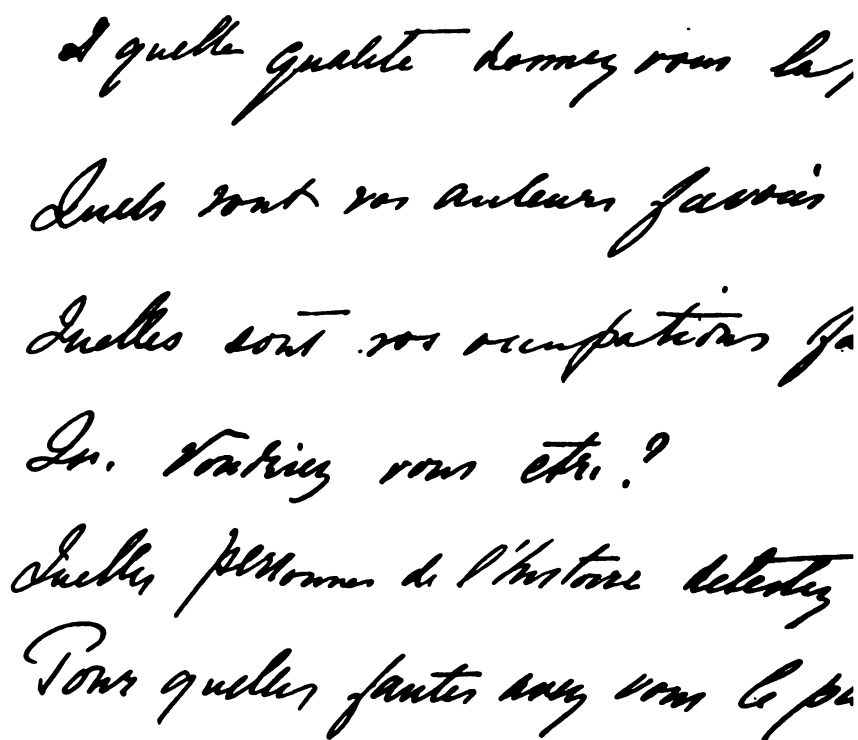 A quelle qualité donnez vous la
Quels sont vos auteurs favoris
Quelles sont vos occupations fa
Qui Voudriez vous etre ?
Quelles personnes de l'histoire detestez
Pour quelles fautes avez vous le pu